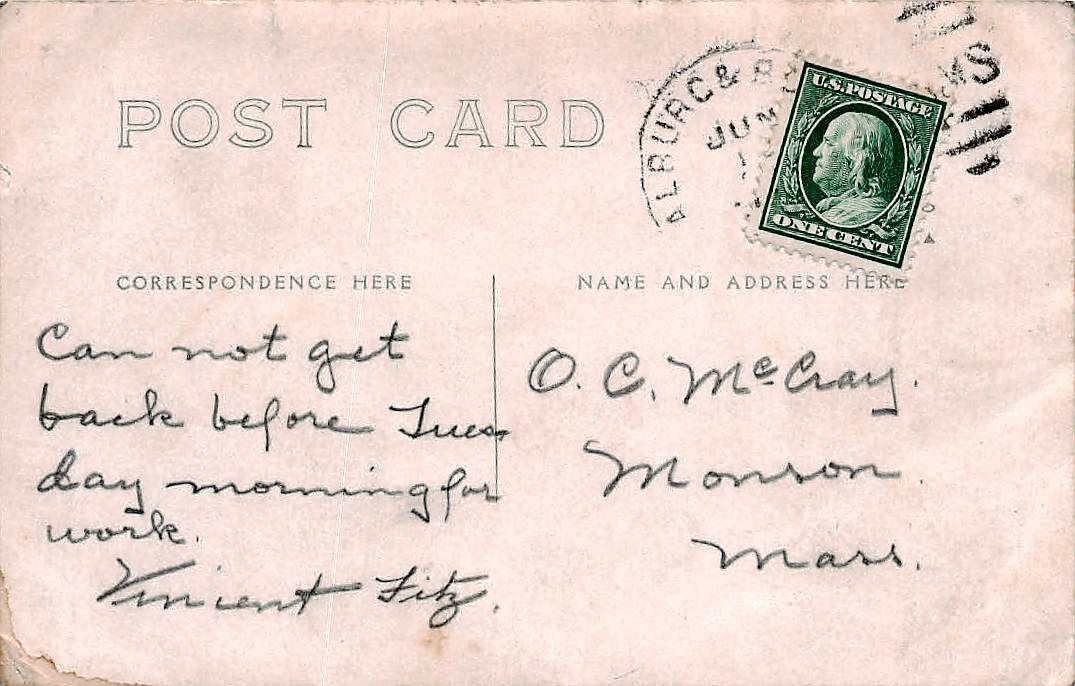 POST CARD
ALBURG &
JUN
U.S. POSTAGE
ONE CENT
CORRESPONDENCE HERE
Can not get
back before Tues
day morning for
work.
Vincent Fitz.
NAME AND ADDRESS HERE
O. C. McCray.
Monson
Mass.